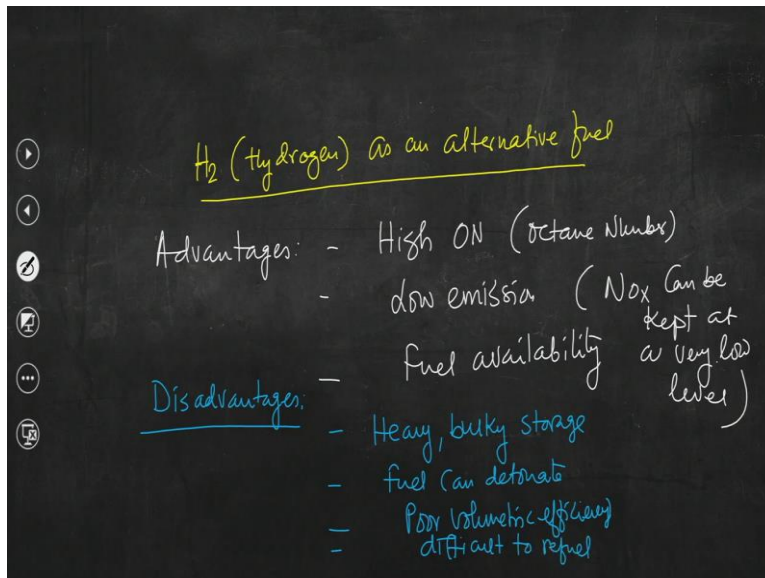 H2 (Hydrogen) as an alternative fuel
Advantages: - High ON (Octane Number)
- Low emission (NOx Can be
kept at
- Fuel availability a very low
level)
Disadvantages:
- Heavy, bulky storage
- Fuel Can detonate
- Poor Volumetric efficiency
- difficult to refuel